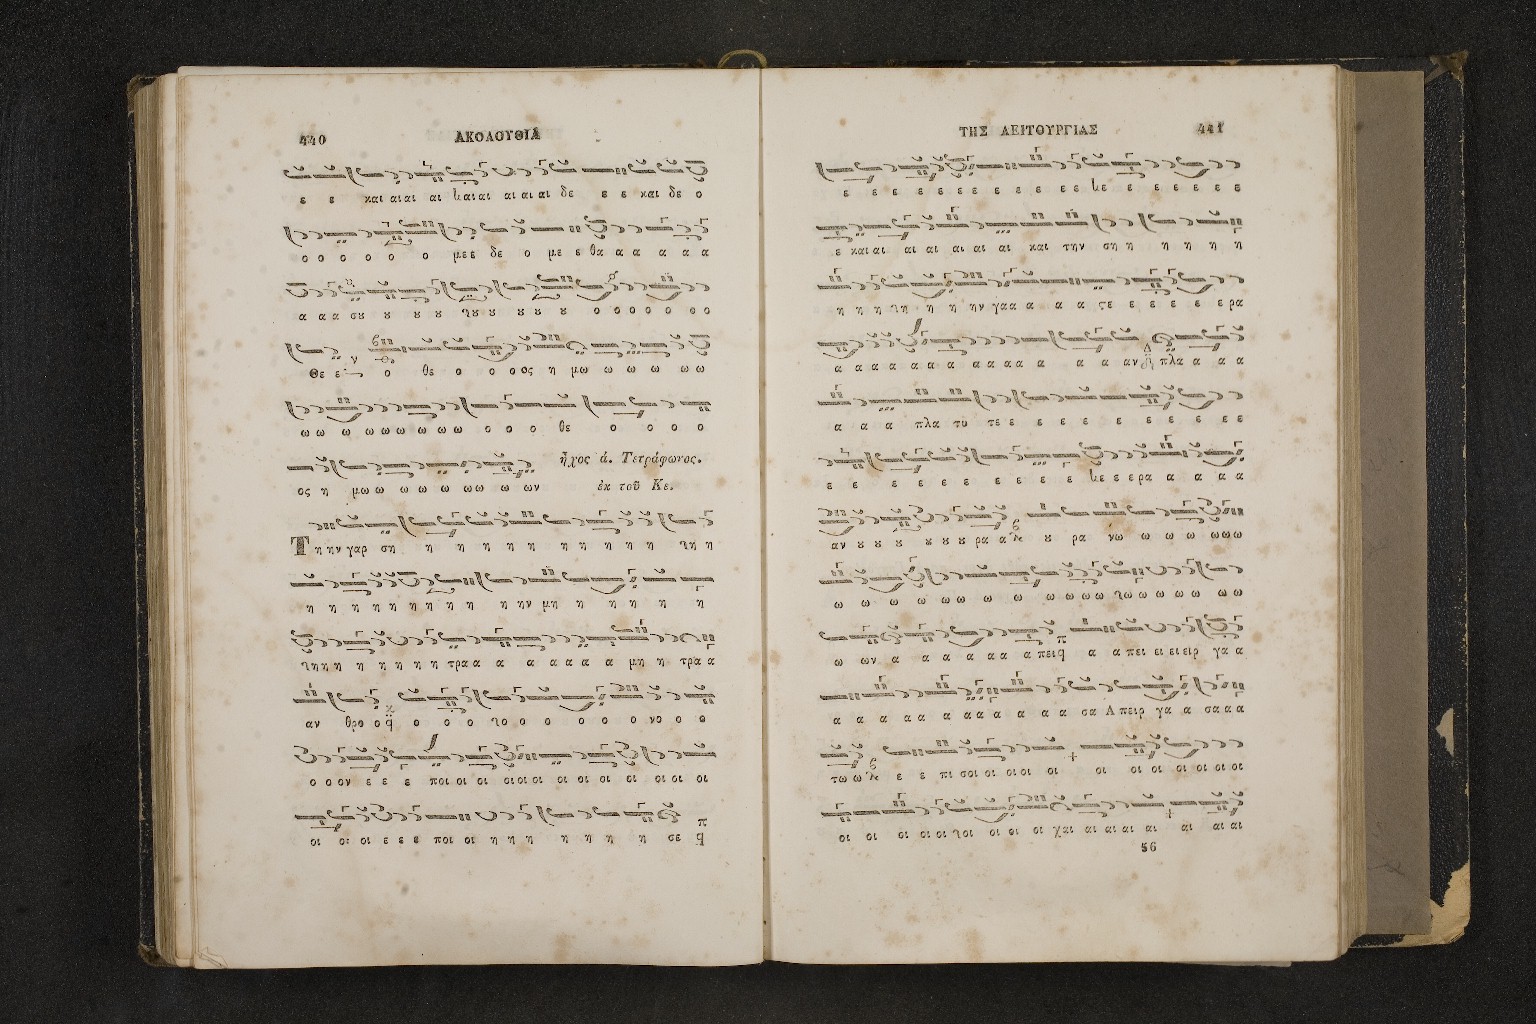 440
ΑΚΟΛΟΥΘΙΑ
ε ε και αιαι αι και αι αι αι αι δε ε ε και δε ο
ο ο ο ο ο ο με ε δε ο με ε θα α α α α α
α α α σου ου ου ου ου ου ου ου ο ο ο ο ο ο ο
Θε ε ο θε ο ο ο ος η μω ω ω ω ω ω
ω ω ω ω ω ω ω ω ω ο ο ο θε ο ο ο ο
ος η μω ω ω ω ω ω ω ω ων
ἦχος ά. Τετράφωνος.
ἐκ τοῦ Κε.
Τη ην γαρ ση η η η η η η η η η χη η
η η η η η η η η η η ην μη η η η η η
χη η η η η η η η τρα α α α α α α α μη η τρα α
αν θρο ο ο ο ο ο χο ο ο ο ο ο νο ο ο
ο ο ον ε ε ε ποι οι οι οι οι οι οι οι οι οι οι οι οι
οι οι οι ε ε ε ποι οι η η η η η η η σε
ΤΗΣ ΛΕΙΤΟΥΡΓΙΑΣ
441
ε ε ε ε ε ε ε ε ε ε ε ε κε ε ε ε ε ε ε
ε και αι αι αι αι αι αι και την ση η η η η η
η η η χη η η ην γα α α α α α ςε ε ε ε ε ε ρα
α α α α α α α α α α α α α α αν πλα α α α
α α α πλα τυ τε ε ε ε ε ε ε ε ε ε ε
ε ε ε ε ε ε ε ε ε ε κε ε ε ρα α α α α
αν ου ου ου ου ου ου ρα α ου ρα νω ω ω ω ω ω ω
ω ω ω ω ω ω ω ω ω ω ω ω χω ω ω ω ω ω ω
ω ων α α α α α α α πει α α πει ει ει ειρ γα α
α α α α α α α α α α α α σα Α πειρ γα α σα α α
τω ω ε ε πι σοι οι οι οι οι οι οι οι οι οι οι οι
οι οι οι οι οι χοι οι οι οι χαι αι αι αι αι αι αι αι
56